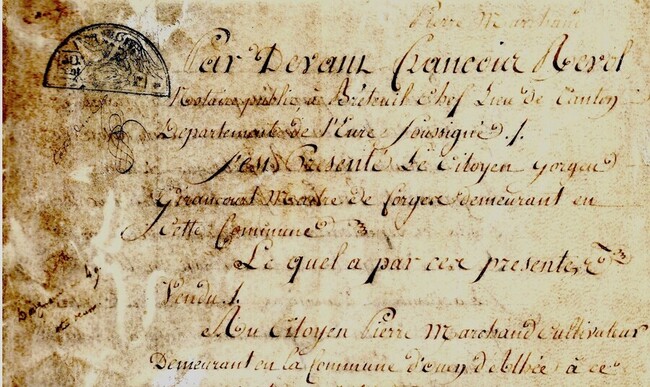 Pierre Marchand
Par Devant Francois Rerol
Notaire public à Breteuil Chef Lieu de Canton
Departement de l'Eure Soussigné ./.
fut Present Le Citoyen
Girancourt Maitre de forges demeurant en
Cette Commune
Le quel a par ces presentes
Vendu ./.
Au Citoyen Pierre Marchand Cultivateur
Demeurant en la Commune d' d'Athée à ce